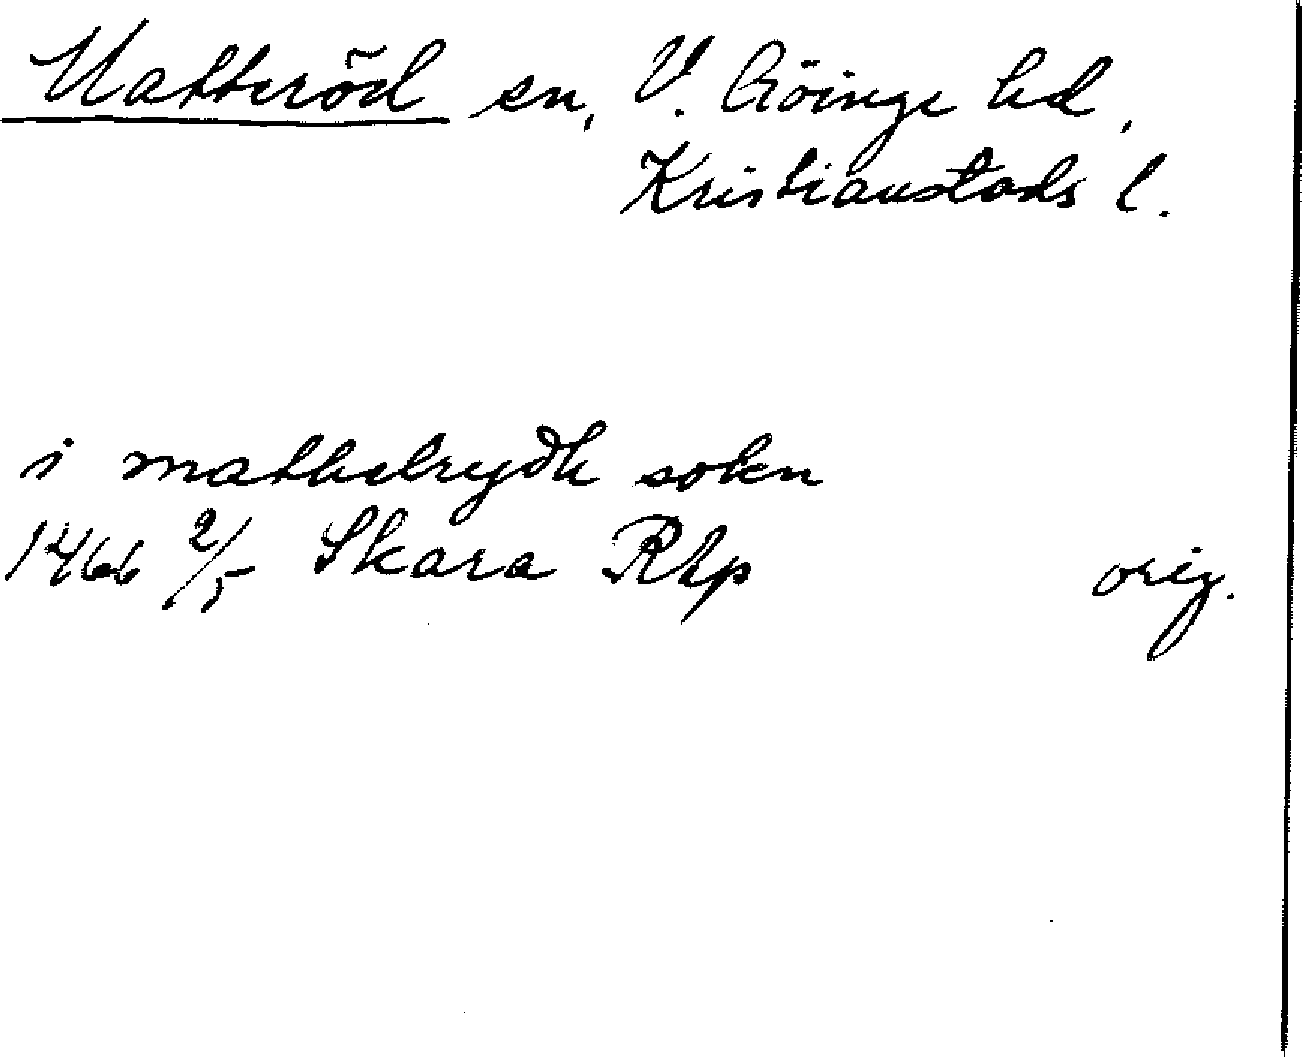 Matteröd sn, V. Göinge hd,
Kristianstads l.
i mathelrydh sokn
1466 2/5 Skara RAp orig.